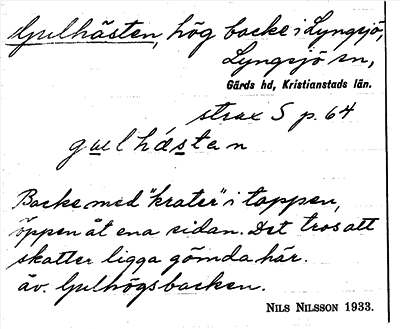 Gulhästen, hög backe i Lyngsjö,
Lyngsjö sn,
Gärds hd, Kristianstads län.
strax S p. 64
gu̲lhás̲tan
Backe med "krater" i toppen,
öppen åt ena sidan. Det tros att
skatter ligga gömda här.
äv. Gulhögsbacken.
NILS NILSSON 1933.